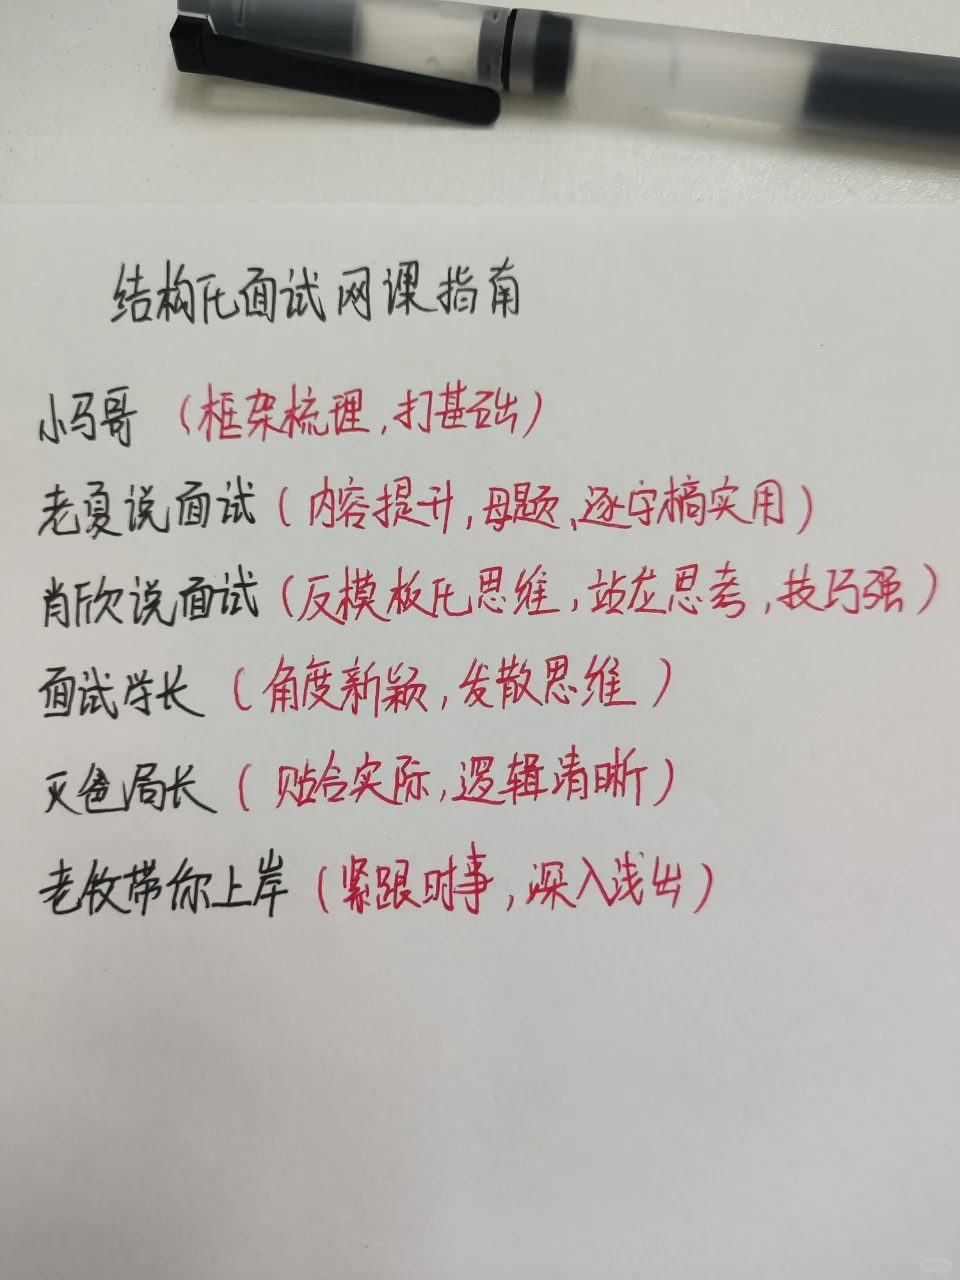 结构化面试网课指南
小马哥（框架梳理,打基础）
老夏说面试（内容提升,母题、逐字稿实用）
肖欣说面试（反模板化思维,站位思考,技巧强）
面试学长（角度新颖,发散思维）
灰色局长（贴合实际,逻辑清晰）
老牧带你上岸（紧跟时事,深入浅出）